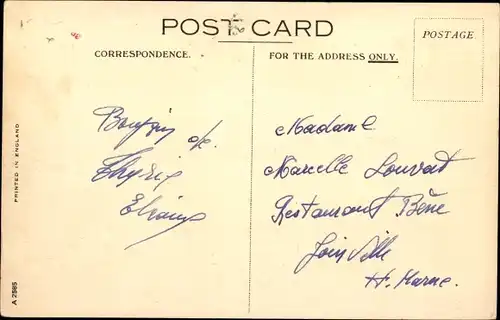 POST CARD
CORRESPONDENCE.
FOR THE ADDRESS ONLY.
POSTAGE
PRINTED IN ENGLAND
A 2585
de
Madame
Marcelle Louvat
Restaurant
Joinville
H. Marne.